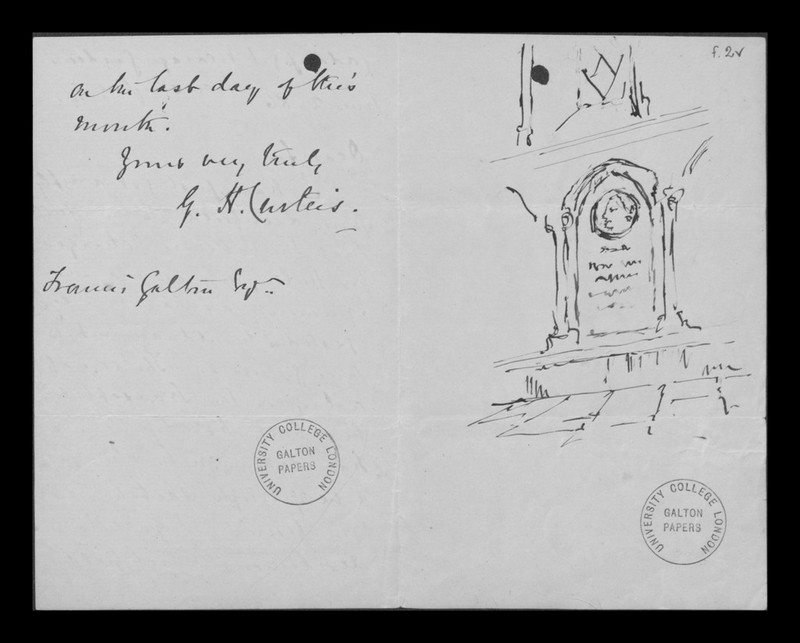 on the last day of this
month.
Yours very truly
G. H. Curteis.
Francis Galton Esqr.
UNIVERSITY COLLEGE LONDON
GALTON
PAPERS
f. 2v
UNIVERSITY COLLEGE LONDON
GALTON
PAPERS